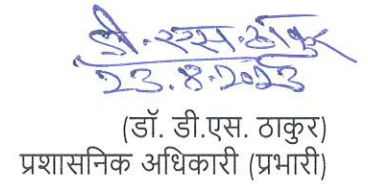 डी.एस.ठाकुर
23.8.2023
(डॉ. डी.एस. ठाकुर)
प्रशासनिक अधिकारी (प्रभारी)